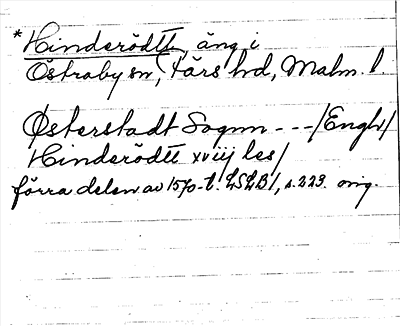 *Hinderödtt, äng i
Östraby sn, Färs hd, Malm. l.
Østerstadt Sognn - - - /Enghr/
Hinderödtt xviij les/
förra delen av 1570-t. LSLB1, s. 223. orig.